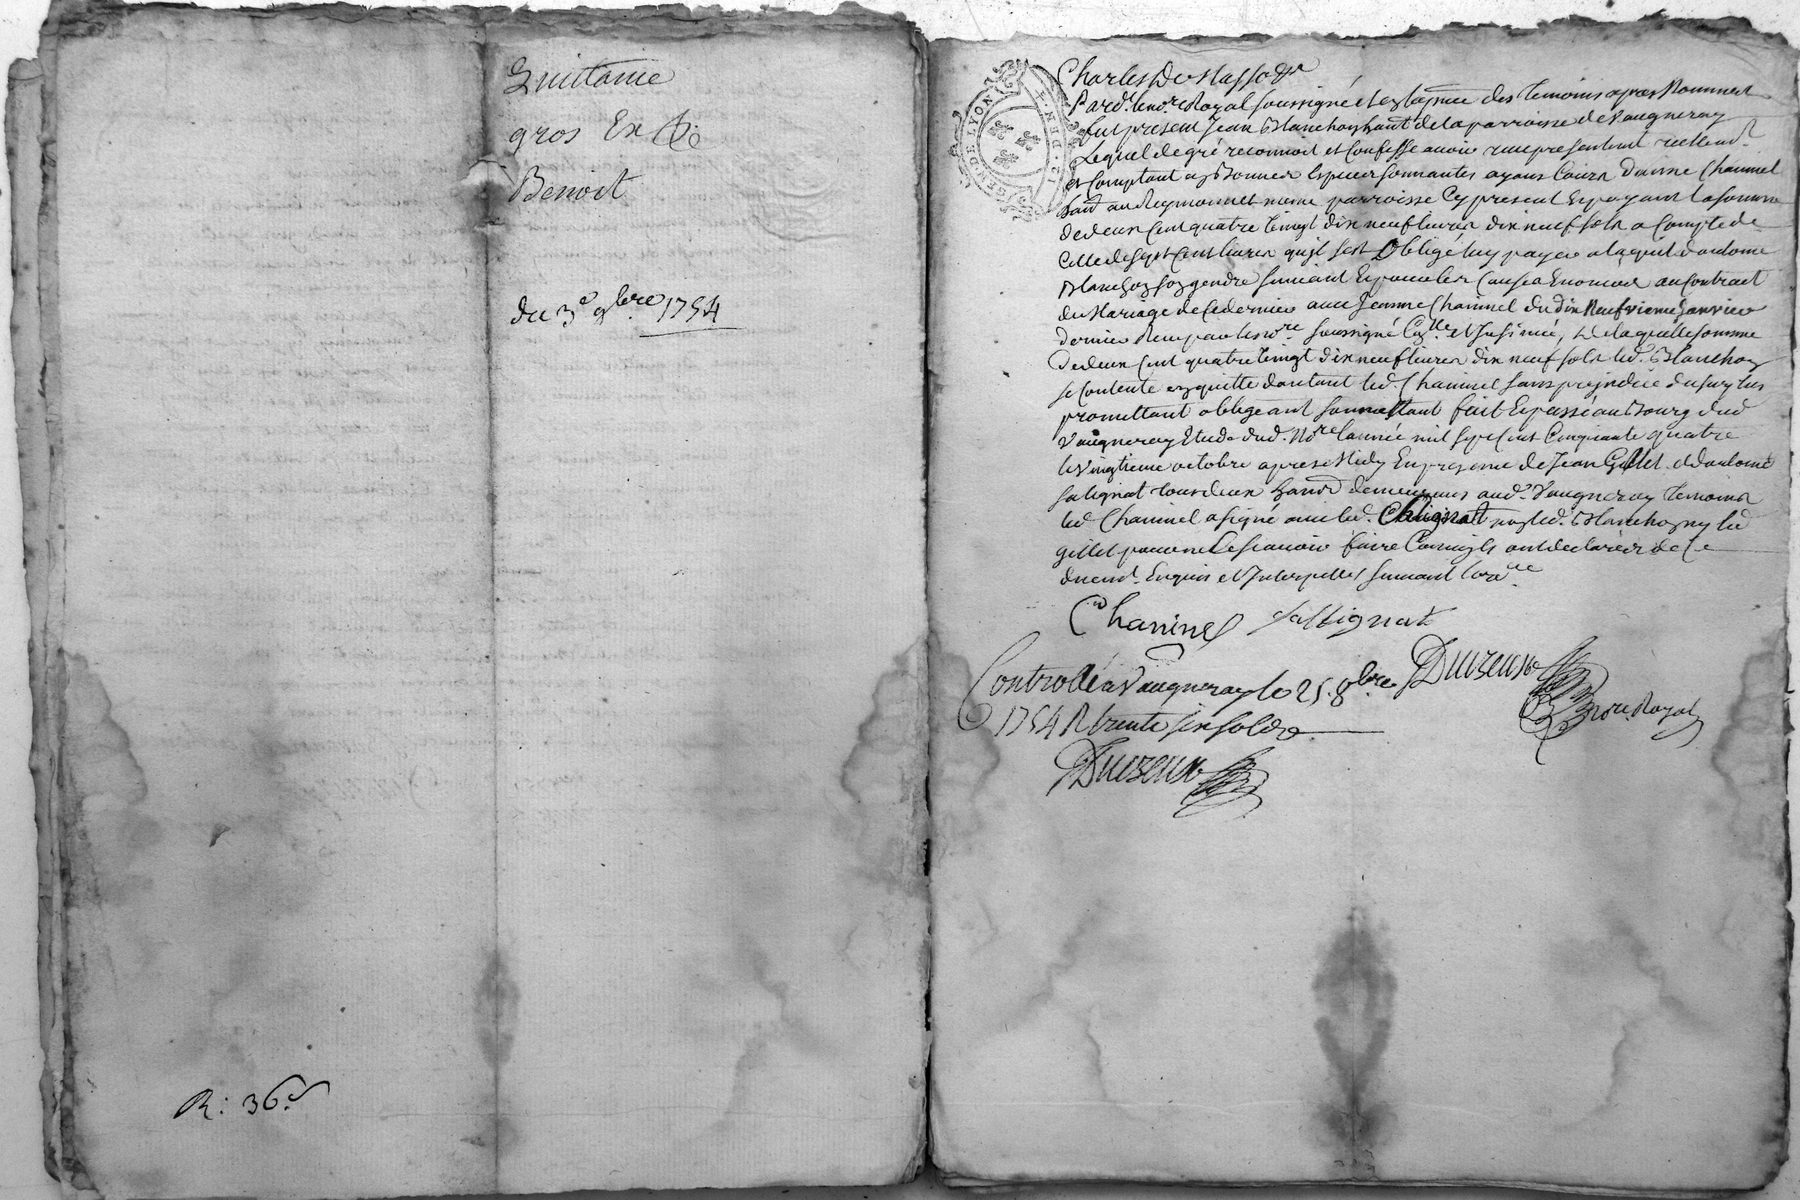 Quittance
gros Ex
Benoit
du 3e 9bre 1754
R: 36s
GEN DE LYON
GEN D
Pard. le nore Royal soussigné et en la pnce des temoins apres Nommes
fut present Jean Blanchon habt de la parroisse de Vaugneray
Lequel de gré reconnoit et Confesse avoir
et Comptant en Bonnes Especes sonnantes ayans Cours Chaninel
habt au Reymonnet meme parroisse Cy present Et payant la somme
de deux Cent quatre vingt dix neuf livres dix neuf sols a Compte de
Celle de sept Cens livres qu'jl s'est Obligé luy payer a l'aquit d'antoine
Blanchon son gendre suivant Et pour les Causes Enoncés au Contrait
du Mariage de ce dernier avec Jeanne Chaninel du dix Neufvieme Janvier
dernier Receu par le nore soussigné Collé et Insinué, de laquelle somme
de deux Cent quatre vingt dix neuf livres dix neuf sols led. Blanchon
se Contente en quitte d'autant led. Chaninel sans prejudice du surplus
promettant obligeant soumettant fait Et passé au Bourg dud
Vaugneray Etude dud. Nore l'année mil sept Cent Cinquante quatre
le vingtieme octobre apres Midy En presence de Jean Gillet et d'antoine
salignat tous deux habts demeurans aud. Vaugneray temoins
led Chaninel a signé avec led. salignat non led. Blanchon ny led
gillet pour ne Le sçavoir faire Comm'jls ont declarés de Ce
duemt. Enquis et Interpellés suivant l'ordce
Chaninel sallignat
Controllé a Vaugneray le 25. 8bre
1754 R trente six sols
nore. Royal